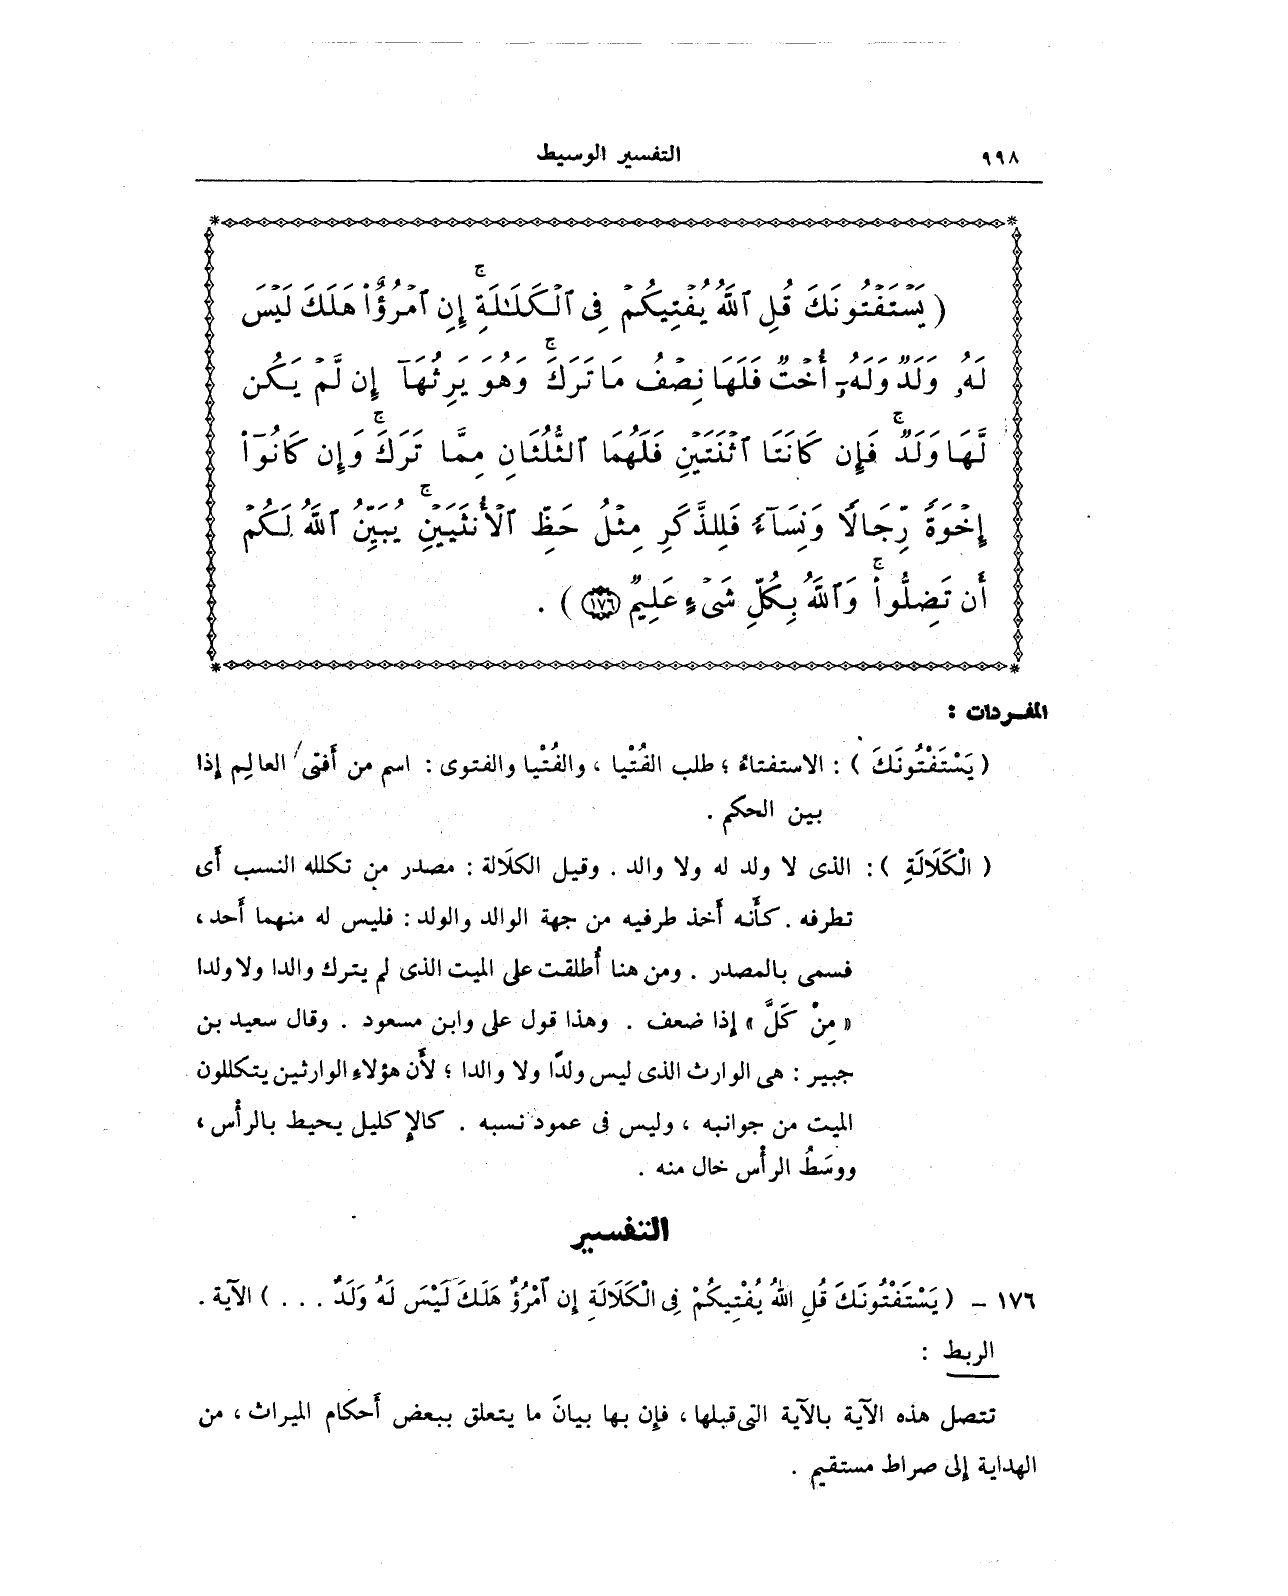 ٩٩٨
التفسير الوسيط
( يَسْتَفْتُونَكَ قُلِ ٱللَّهُ يُفْتِيكُمْ فِى ٱلْكَلَـٰلَةِ ۚ إِنِ ٱمْرُؤٌا۟ هَلَكَ لَيْسَ
لَهُۥ وَلَدٌ وَلَهُۥٓ أُخْتٌ فَلَهَا نِصْفُ مَا تَرَكَ ۚ وَهُوَ يَرِثُهَآ إِن لَّمْ يَكُن
لَّهَا وَلَدٌ ۚ فَإِن كَانَتَا ٱثْنَتَيْنِ فَلَهُمَا ٱلثُّلُثَانِ مِمَّا تَرَكَ ۚ وَإِن كَانُوٓا۟
إِخْوَةً رِّجَالًا وَنِسَآءً فَلِلذَّكَرِ مِثْلُ حَظِّ ٱلْأُنثَيَيْنِ ۚ يُبَيِّنُ ٱللَّهُ لَكُمْ
أَن تَضِلُّوا۟ ۚ وَٱللَّهُ بِكُلِّ شَىْءٍ عَلِيمٌ ١٧٦ ) .
المفـردات :
( يَسْتَفْتُونَكَ ) : الاستفتاءُ ؛ طلب الفُتْيا ، والفُتْيا والفتوى : اسم من أَفتى العالِم إذا
بين الحكم .
( الْكَلَالَةِ ) : الذى لا ولد له ولا والد . وقيل الكلَالة : مصدر من تكلله النسب أَى
تطرفه . كأَنه أَخذ طرفيه من جهة الوالد والولد : فليس له منهما أَحد ،
فسمى بالمصدر . ومن هنا أُطلقت على الميت الذى لم يترك والدا ولا ولدا
« مِنْ كَلَّ » إذا ضعف . وهذا قول على وابن مسعود . وقال سعيد بن
جبير : هى الوارث الذى ليس ولدًا ولا والدا ؛ لأَن هؤلاءِ الوارثين يتكللون
الميت من جوانبه ، وليس فى عمود نسبه . كالإكليل يحيط بالرأْس ،
ووسَطُ الرأْس خال منه .
التفسير
١٧٦ – ( يَسْتَفْتُونَكَ قُلِ اللهُ يُفْتِيكُمْ فِى الْكَلَالَةِ إِنِ ٱمْرُؤٌ هَلَكَ لَيْسَ لَهُ وَلَدٌ . . . ) الآية .
الربط :
تتصل هذه الآية بالآية التى قبلها ، فإن بها بيانَ ما يتعلق ببعض أَحكام الميراث ، من
الهداية إلى صراط مستقيم .